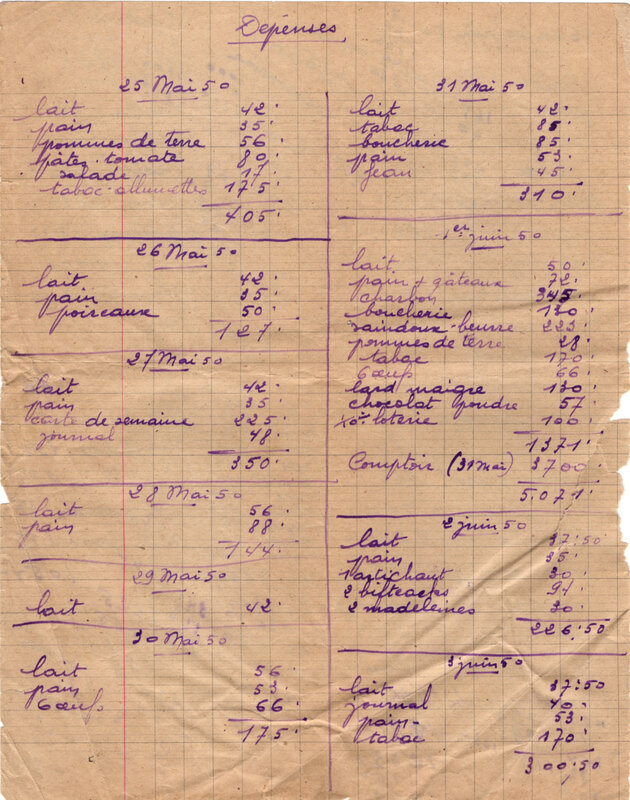 Dépenses
25 Mai 50
lait 42
pain 35
pommes de terre 56
pâtes-tomate 80
salade 17
tabac-allumettes 175
405
26 Mai 50
lait 42
pain 35
poireaux 50
127
27 Mai 50
lait 42
pain 35
carte de semaine 225
journal 48
350
28 Mai 50
lait 56
pain 88
144
29 Mai 50
lait 42
30 Mai 50
lait 56
pain 53
6 œufs 66
175
31 Mai 50
lait 42
tabac 85
boucherie 85
pain 53
Jean 45
310
1er juin 50
lait 50
pain + gâteaux 72
charbon 345
boucherie 130
saindoux-beurre 223
pommes de terre 28
tabac 170
6 œufs 66
lard maigre 130
chocolat poudre 57
loterie 100
1371
Comptoir (31 Mai) 3700
5.071
2 juin 50
lait 37:50
pain 35
1 artichaut 30
2 biftecks 94
2 madeleines 30
226:50
3 juin 50
lait 37:50
journal 40
pain 53
tabac 170
300:50